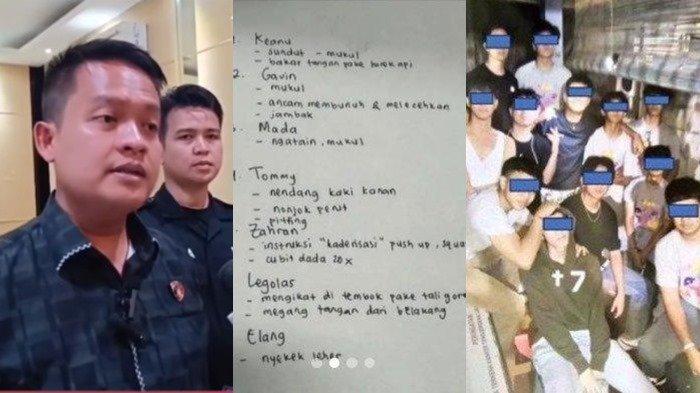 1. Keanu
- sundut - mukul
- bakar tangan pake korek api
2. Gavin
- mukul
- ancam membunuh & melecehkan
- jambak
Mada
- ngatain, mukul
Tommy
- nendang kaki kanan
- nonjok perut
- pitting
Zahran
- instruksi "kaderisasi" push up, squa
- cubit dada 20x
Legolas
- mengikat di tembok pake tali gor
- megang tangan dari belakang
Elang
- nyekek leher
7